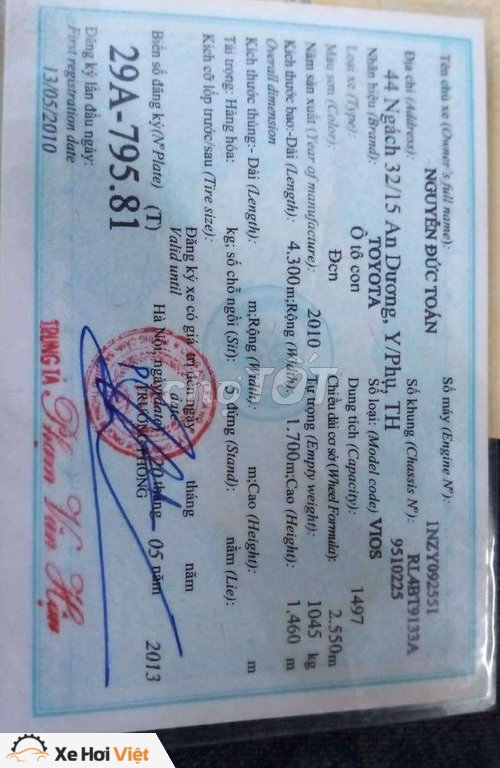 Tên chủ xe (Owner's full name):
NGUYỄN ĐỨC TOÁN
Địa chỉ (Address):
44 Ngách 32/15 An Dương, Y/Phụ, TH
Nhãn hiệu (Brand): TOYOTA
Loại xe (Type): Ô tô con
Màu sơn (Color): Đen
Năm sản xuất (Year of manufacture): 2010
Kích thước bao:-Dài (Length): 4.300m;Rộng (Width): 1.700m;Cao (Height): 1.460 m
Overall dimension
Kích thước thùng:- Dài (Length): m;Rộng (Width): m;Cao (Height): m
Tải trọng: Hàng hóa: kg, số chỗ ngồi (Sit): 5 đứng (Stand): nằm (Lie):
Kích cỡ lốp trước/sau (Tire size):
Số máy (Engine Nº): 1NZY092551
Số khung (Chassis Nº): RL4BT9133A
9510225
Số loại: (Model code) VIOS
Dung tích (Capacity): 1497
Chiều dài cơ sở (Wheel Formula): 2.550m
Tự trọng (Empty weight): 1045 kg
Đăng ký xe có giá trị đến ngày tháng năm
Valid until
Biển số đăng ký(Nº Plate) (T)
29A-795.81
Đăng ký lần đầu ngày:
First registration date
13/05/2010
Hà Nội, ngày (date) 20 tháng 05 năm 2013
TRƯỞNG PHÒNG
TRUNG TÁ Phạm Văn Hậu
chợ TỐT
Xe Hơi Việt